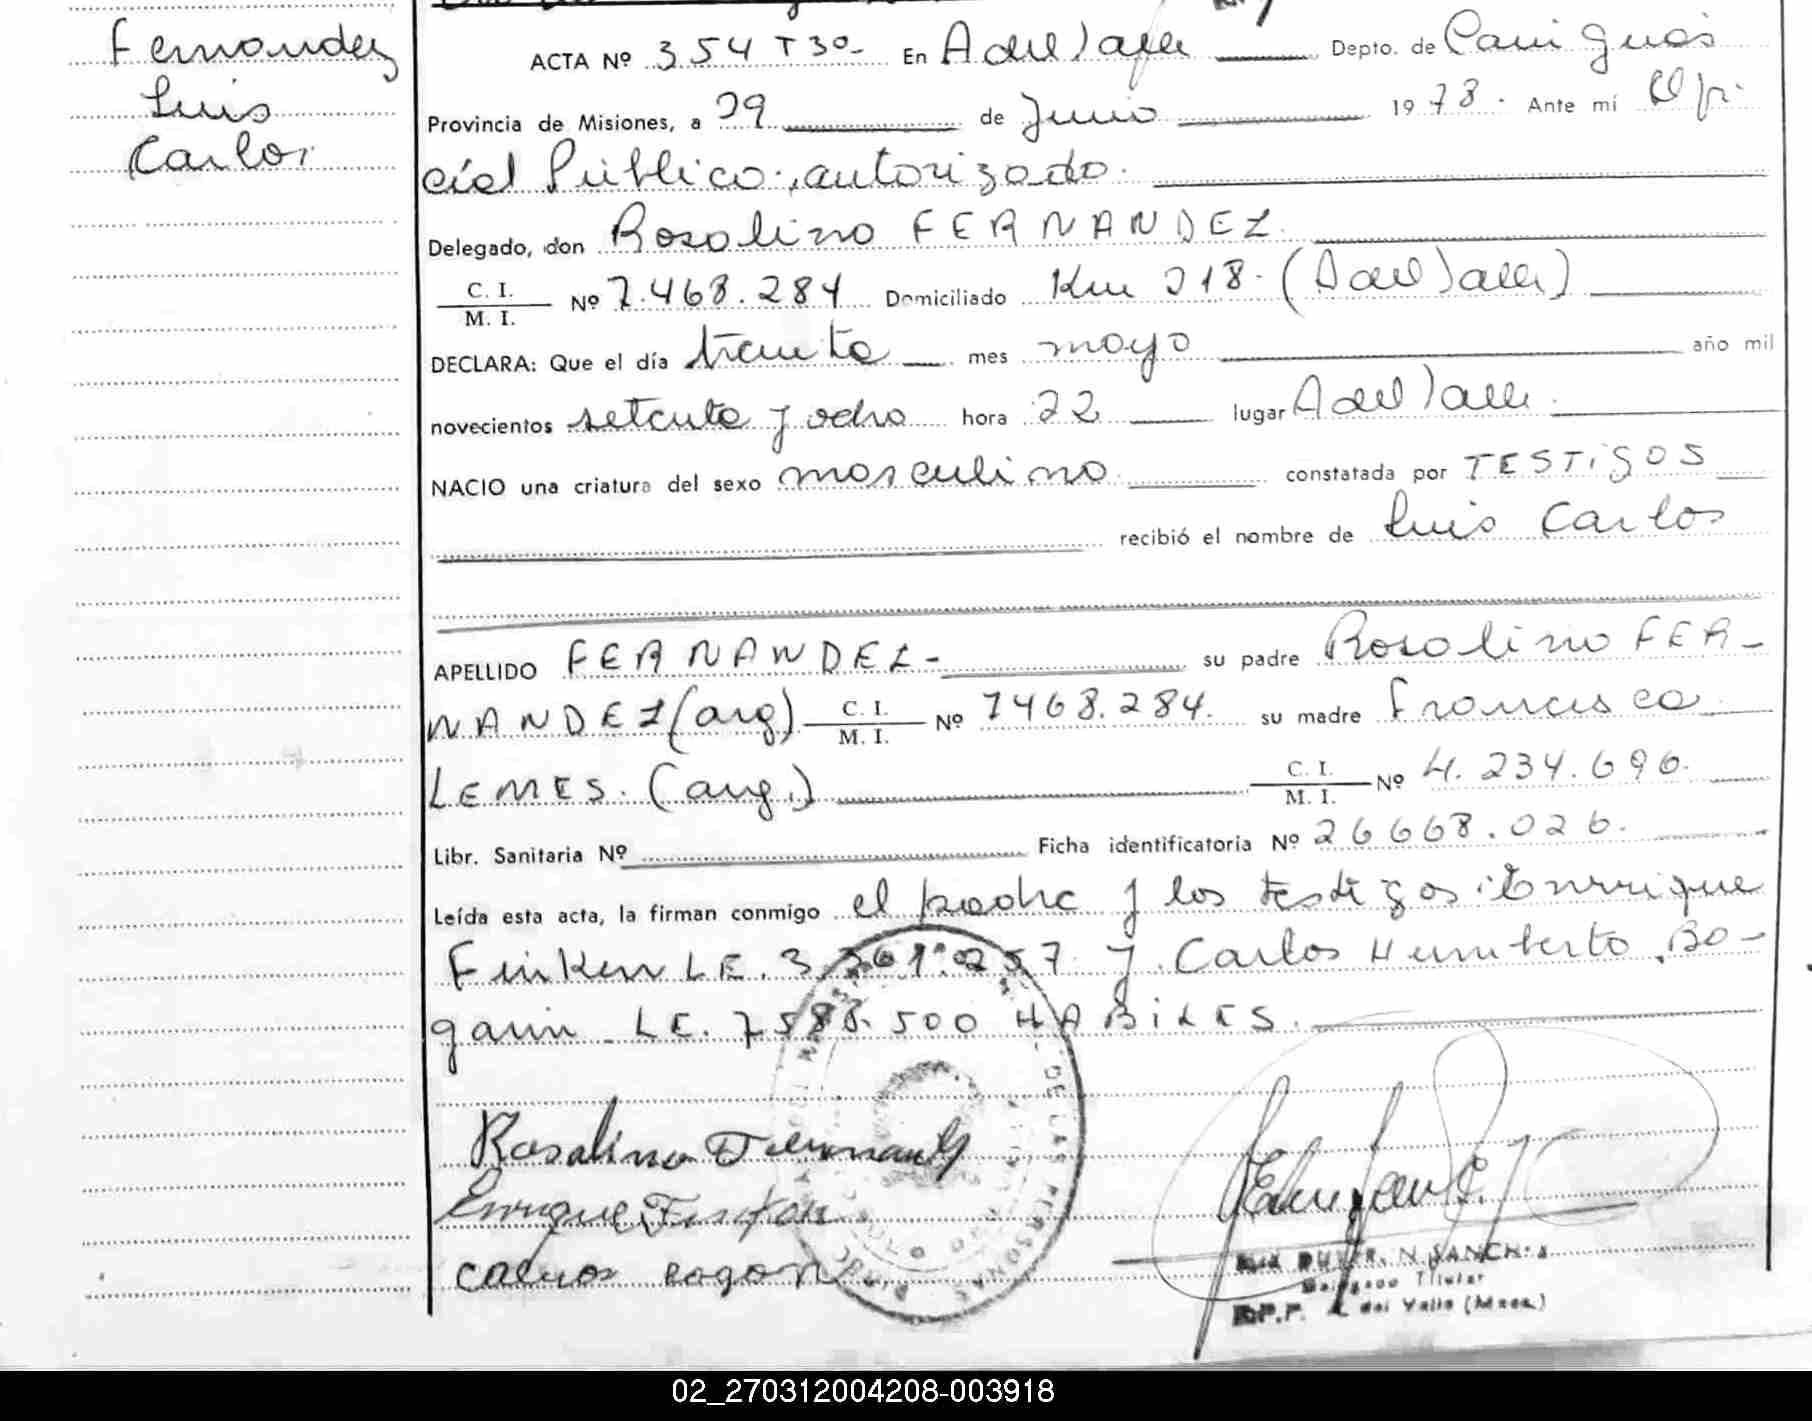 Fernandez
Luis
Carlos
ACTA Nº 354 T30- En A del Valle Depto. de Cainguás
Provincia de Misiones, a 29 de Junio 1978. Ante mí Ofi
cial Público, autorizado.
Delegado, don Rosolino FERNANDEZ.
C. I. / M. I. Nº 7.468.284 Domiciliado Km 218. (A del Valle)
DECLARA: Que el día treinta mes mayo año mil
novecientos setenta y ocho hora 22 lugar A del Valle.
NACIO una criatura del sexo masculino constatada por TESTIGOS
recibió el nombre de Luis Carlos
APELLIDO FERNANDEZ- su padre Rosolino FER-
NANDEZ (arg) C. I. / M. I. Nº 7468.284. su madre Francisca
LEMES. (arg.) C. I. / M. I. Nº 4.234.696.
Libr. Sanitaria Nº Ficha identificatoria Nº 26668.026.
Leída esta acta, la firman conmigo el padre y los testigos: Enrrique
Finken LE. 3.361.257 y Carlos Humberto Bo-
garin. LE. 7588.500 HABILES.
Rosalino Fernandez
Enrique Finken
DE LAS PERSONAS
SANCHEZ
Delegado Titular
R.P.P. A. del Valle (Mnes.)
02_270312004208-003918